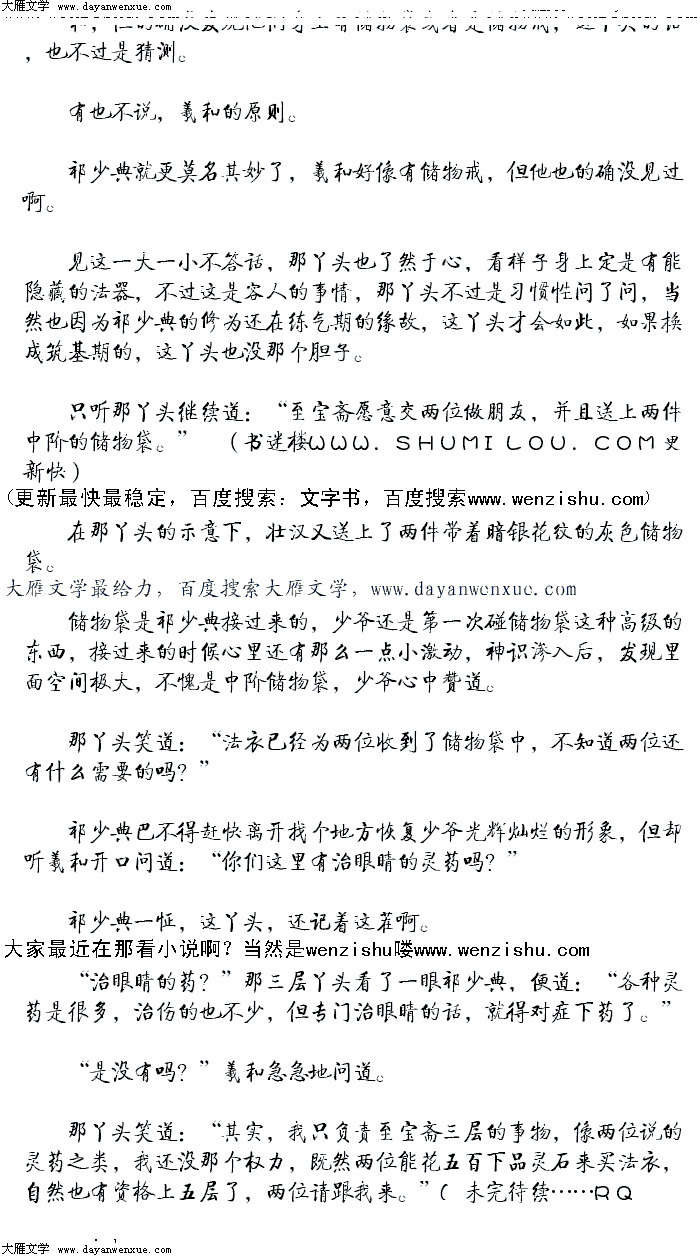 大雁文学 www.dayanwenxue.com www.dayanwenxue.com
，也不过是猜测。
有也不说，羲和的原则。
祁少典就更莫名其妙了，羲和好像有储物戒，但他也的确没见过
啊。
见这一大一小不答话，那丫头也了然于心，看样子身上定是有能
隐藏的法器，不过这是客人的事情，那丫头不过是习惯性问了问，当
然也因为祁少典的修为还在练气期的缘故，这丫头才会如此，如果换
成筑基期的，这丫头也没那个胆子。
只听那丫头继续道：“至宝斋愿意交两位做朋友，并且送上两件
中阶的储物袋。” （书迷楼ＷＷＷ．ＳＨＵＭＩＬＯＵ．ＣＯＭ更
新快）
(更新最快最稳定，百度搜索：文字书，百度搜索www.wenzishu.com)
在那丫头的示意下，壮汉又送上了两件带着暗银花纹的灰色储物
袋。
大雁文学最给力，百度搜索大雁文学，www.dayanwenxue.com
储物袋是祁少典接过来的，少爷还是第一次碰储物袋这种高级的
东西，接过来的时候心里还有那么一点小激动，神识渗入后，发现里
面空间极大，不愧是中阶储物袋，少爷心中赞道。
那丫头笑道：“法衣已经为两位收到了储物袋中，不知道两位还
有什么需要的吗？”
祁少典巴不得赶快离开找个地方恢复少爷光辉灿烂的形象，但却
听羲和开口问道：“你们这里有治眼睛的灵药吗？”
祁少典一怔，这丫头，还记着这茬啊。
大家最近在那看小说啊？当然是wenzishu喽www.wenzishu.com
“治眼睛的药？”那三层丫头看了一眼祁少典，便道：“各种灵
药是很多，治伤的也不少，但专门治眼睛的话，就得对症下药了。”
“是没有吗？”羲和急急地问道。
那丫头笑道：“其实，我只负责至宝斋三层的事物，像两位说的
灵药之类，我还没那个权力，既然两位能花五百下品灵石来买法衣，
自然也有资格上五层了，两位请跟我来。”（ 未完待续……ＲＱ
大雁文学 www.dayanwenxue.com www.dayanwenxue.com